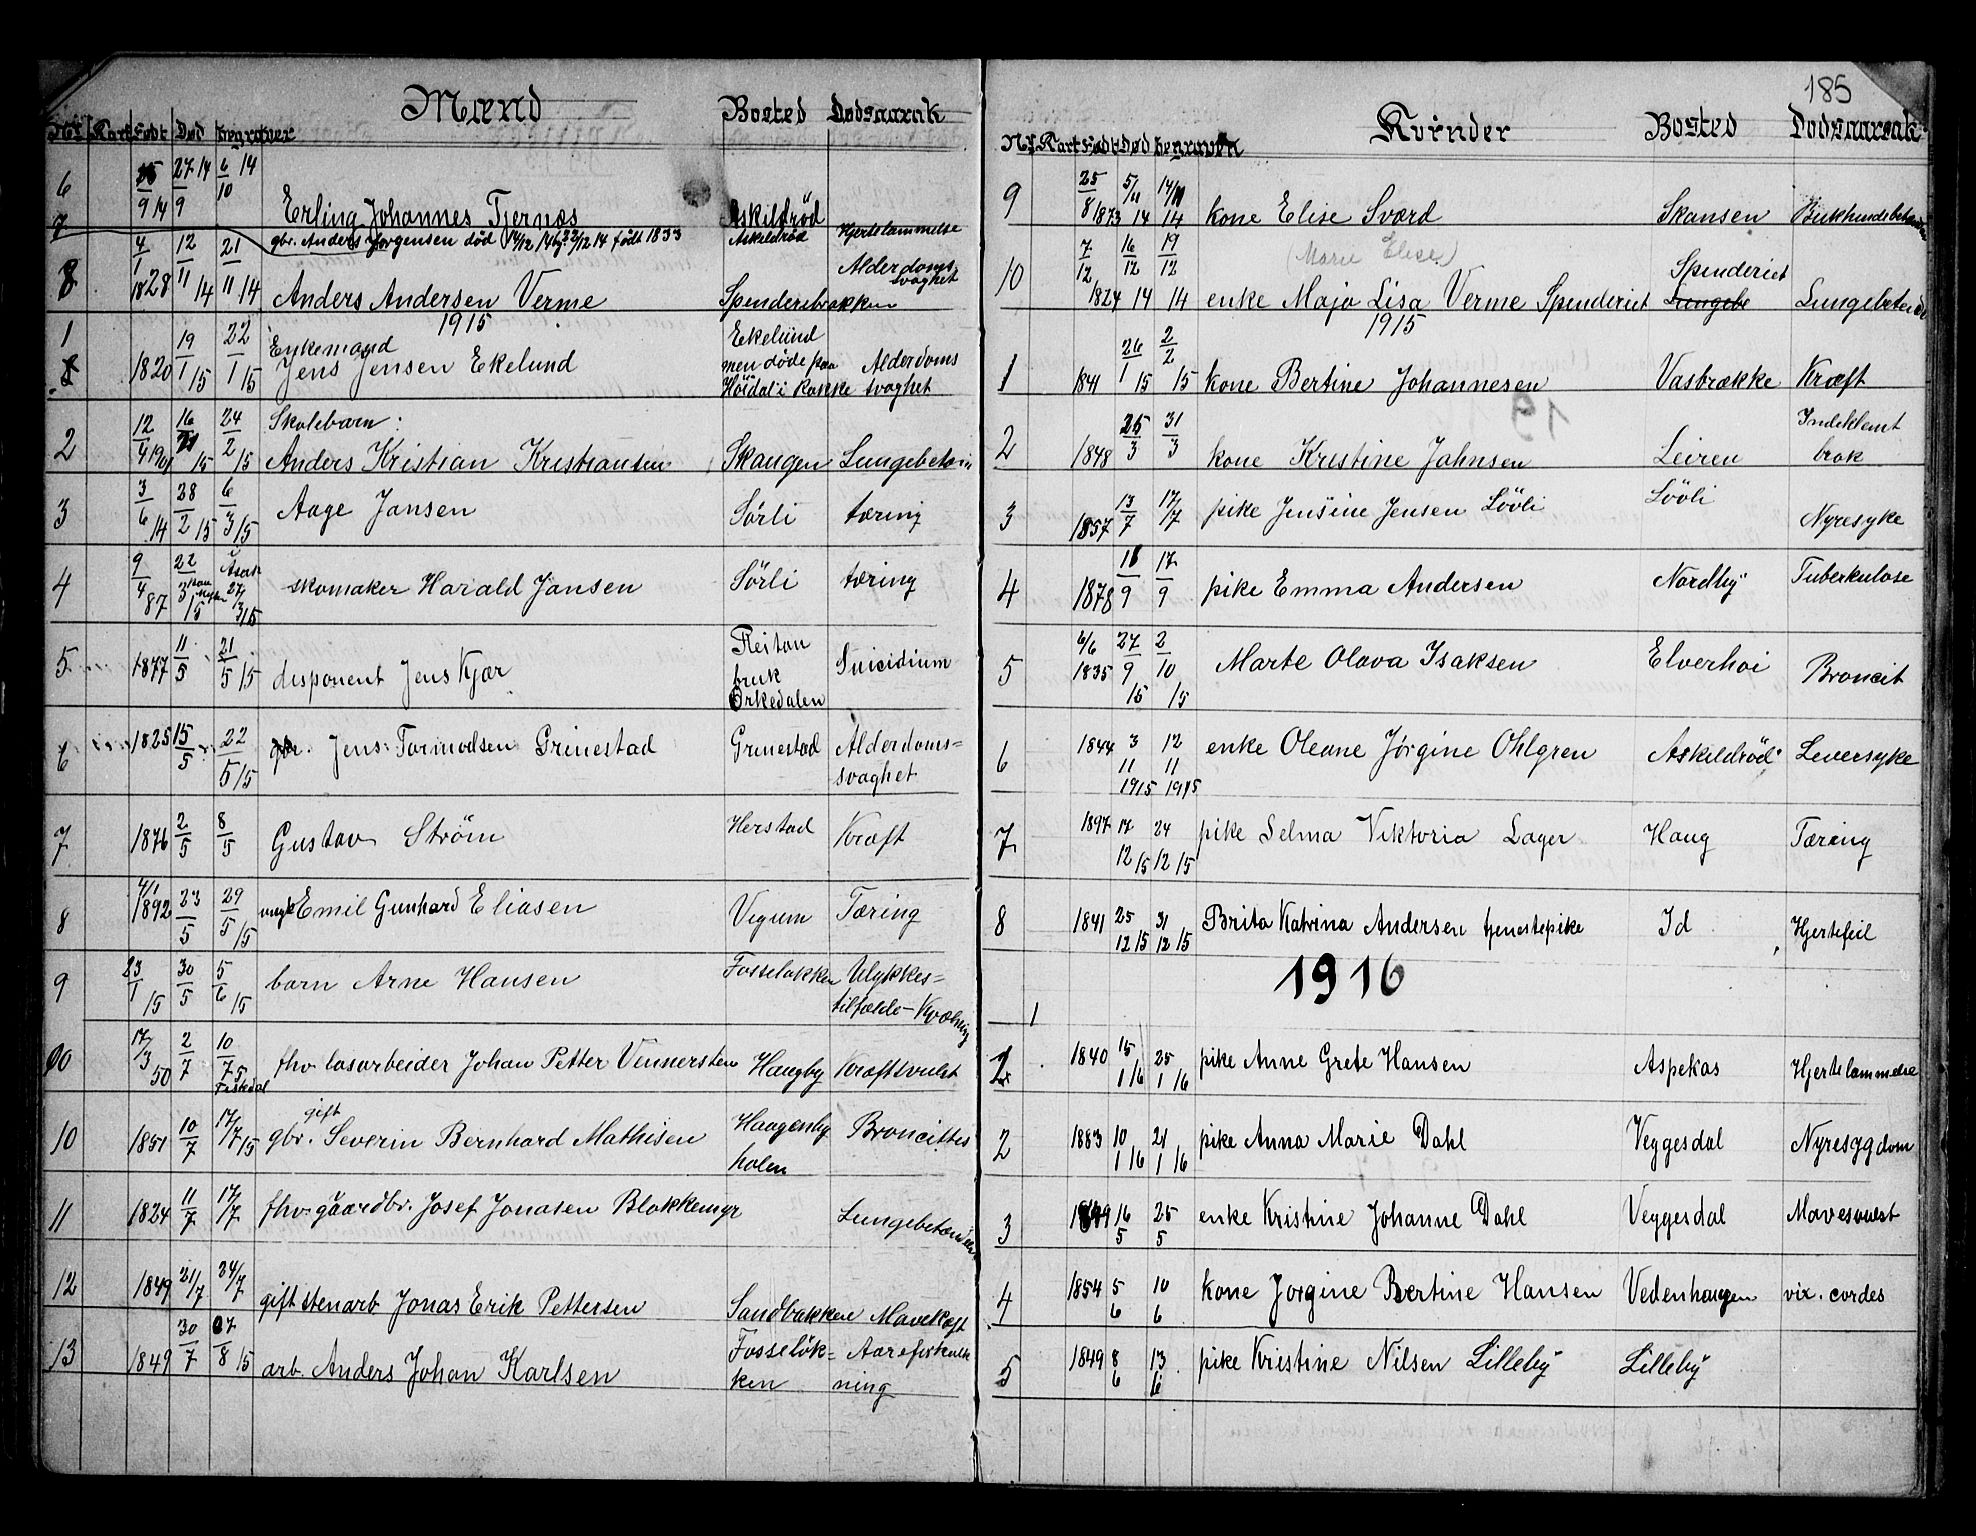 185
Mænd Bosted Dødsaarsak
Nr Kart Født Død begraven
6 25/9 14 27/9 14 6/10 14 Erling Johannes Tjernæs Askildrød
7 gbr. Anders Jørgensen død 14/12 14 bg 22/12 14 født 1833 Askeldrød Hjertelammelse
8 4/1 1828 12/11 14 21/11 14 Anders Andersen Verme Spenderibrakken Alderdoms
svaghet
1915
1 1820 19/1 15 22/1 15 Enkemand
Jens Jensen Ekelund
Ekelund
men døde paa
Höidal i Rakke
Alderdoms
svaghet
2 12/4 1901 16/2 15 24/2 15 Skolebarn:
Anders Kristian Kristiansen Skaugen Lungebetæn
3 3/6 14 28/2 15 6/3 15 Aage Jansen Sörli tæring
4 9/4 87 22/3 15 Asak 27/3 15 skomaker Harald Jansen Sörli tæring
5 1877 11/5 21/5 15 disponent Jens Kjær
bruk
Orkedalen
Suicidium
6 1825 15/5 22/5 15 gbr. Jens Tormodsen Grinestad Grinestad Alderdoms=
svaghet
7 1876 2/5 8/5 Gustav Ström Herstad Kræft
8 4/1 1892 23/5 29/5 15 ungk Emil Gunhard Eliasen Vigum Tæring
9 23/1 15 30/5 5/6 15 barn Arne Hansen Fosseløkken Ulykkes=
tilfælde - Kvælning
17/3 50 2/7 10/7 15 fhv løsarbeider Johan Petter Vennersten Haugby Kræftsvulst
10 1851 10/7 17/7 15 gift
gbr. Severin Bernhard Mathisen Haagensby
holen
Broncittes
11 1824 11/7 17/7 fhv gaardbr. Josef Jonasen Blokkemyr Lungebetænden
12 1849 21/7 24/7 gift stenarb Jonas Erik Pettersen Sandbakken Mavekræft
13 1849 30/7 8 15 arb Anders Johan Karlsen Fosseløk=
ken
Aareforkalk
ning
Kvinder Bosted Dødsaarsak
Nr Kart Født Død begraven
9 25/8 1873 5/11 14 14/11 14 kone Elise Sværd Skansen Bukhindebetænde
(Marie Elise)
10 7/12 1824 16/12 14 19/12 14 enke Maja Lisa Verme Spenderiet Spenderiet
Lungebe Lungebetænd
1915
1 1841 26/1 15 2/2 15 kone Bertine Johannesen Vasbrække Kræft
2 1848 25/3 31/3 kone Kristine Johnsen Leiren Indeklemt
brok
3 1857 13/7 17/7 pike Jensine Jensen Lööli Lööli Nyresyke
4 1878 11/9 17/9 pike Emma Andersen Nordby Tuberkulose
5 6/6 1835 27/9 15 2/10 15 Marte Olava Isaksen Elverhoi Broncit
6 1844 3/11 1915 12/11 1915 enke Oleane Jörgine Ohlgren Askildröd Leversyke
7 1897 17/12 15 24/12 15 pike Selma Viktoria Lager Haug Tæring
8 1841 25/12 15 31/12 15 Brita Katrina Andersen tjenestepike Id Hjertefeil
1916
1
1 1840 15/1 16 25/1 16 pike Anne Grete Hansen Aspekas Hjertelammelse
2 1883 10/1 16 21/1 16 pike Anna Marie Dahl Veggesdal Nyresygdom
3 1849 16/5 25/5 enke Kristine Johanne Dahl Veggesdal Mavesvulst
4 1854 5/6 10/6 kone Jorgine Bertine Hansen Vedenhaugen vix. cordes
5 1849 8/6 13/6 pike Kristine Nilsen Lilleby Lilleby